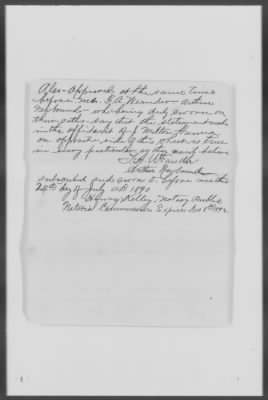 Also Appeared at the same time
before me G.A. Weander Arthur
who being duly sworn on
their oaths say that the statement made
in the affidavit of J Milton Hanna
on opposite side of this sheet is true
in every particular as they verily believe
Arthur
subscribed and sworn to before me this
24th day of July AD 1890
Henry Kelley, Notary Public
Notarial Commission Expires Dec